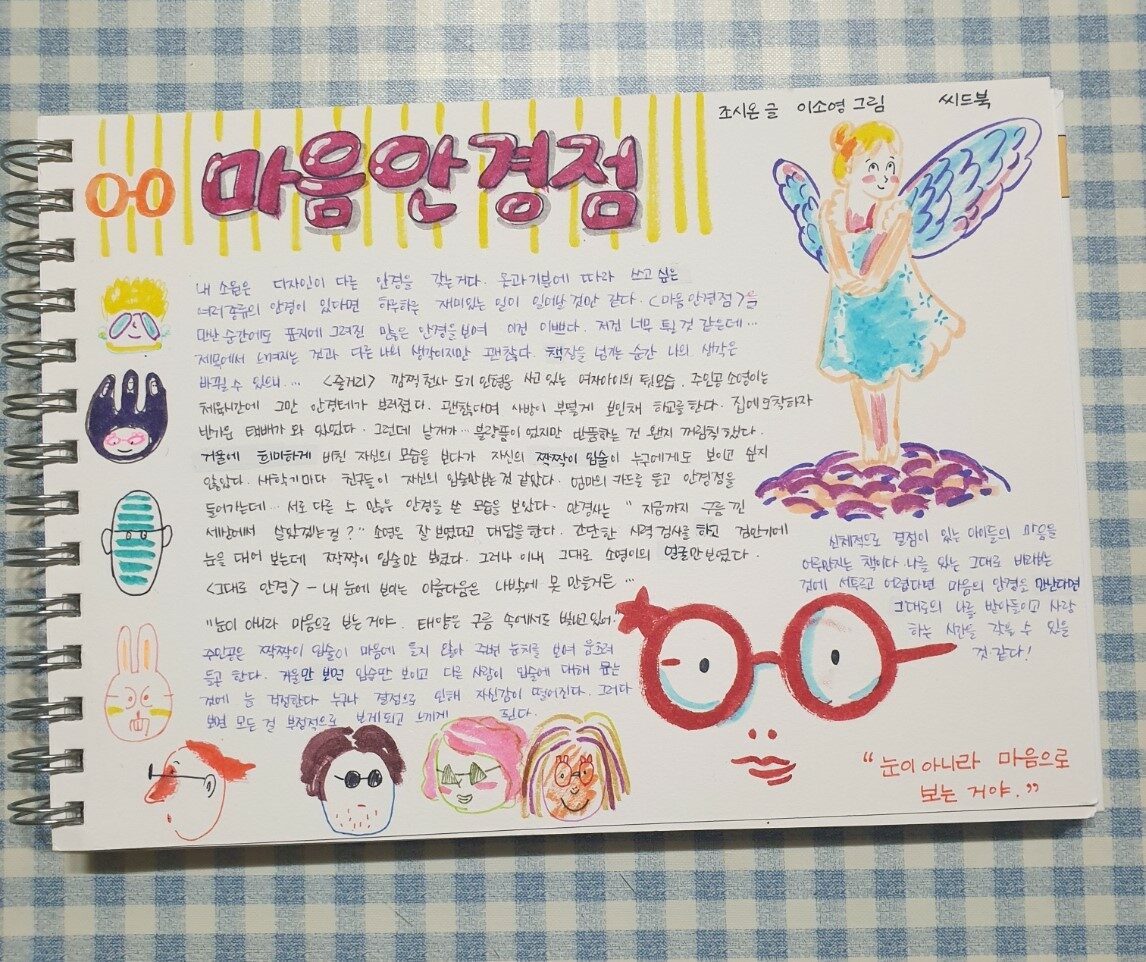 조시온 글 이소영 그림 씨드북
마음안경점
내 소원은 디자인이 다른 안경을 갖는거다. 옷과 기분에 따라 쓰고 싶은
여러 종류의 안경이 있다면 하루하루 재미있는 일이 일어날 것만 같다. <마음안경점>을
만난 순간에도 표지에 그려진 많은 안경을 보며 이건 이쁘다. 저건 너무 튈 것 같은데…
제목에서 느껴지는 것과 다른 나의 생각이지만 괜찮다. 책장을 넘기는 순간 나의 생각은
바뀔 수 있으니… <줄거리> 깜찍 천사 도기 인형을 사고 있는 여자아이의 뒷모습. 주인공 소영이는
체육시간에 그만 안경테가 부러졌다. 괜찮다며 사방이 부옇게 보인채 하교를 한다. 집에 도착하자
반가운 택배가 와 있었다. 그런데 날개가… 불량품이 었지만 반품하는 건 왠지 꺼림칙 했다.
거울에 희미하게 비친 자신의 모습을 보다가 자신의 짝짝이 입술이 누구에게도 보이고 싶지
않았다. 새학기마다 친구들이 자신의 입술만 보는 것 같았다. 엄마의 카드를 들고 안경점을
들어가는데… 서로 다른 수 많은 안경을 쓴 모습을 보았다. 안경사는 " 지금까지 구름 낀
세상에서 살았겠는 걸?" 소영은 잘 보였다고 대답을 한다. 간단한 시력 검사를 하고 검안기에
눈을 대어 보는데 짝짝이 입술만 보였다. 그러나 이내 그대로 소영이의 얼굴만 보였다.
<그대로 안경> - 내 눈에 보이는 아름다움은 나밖에 못 만들거든…
"눈이 아니라 마음으로 보는거야. 태양은 구름 속에서도 빛나고 있어."
주인공은 짝짝이 입술이 마음에 들지 않아 주변 눈치를 보며 움츠려
들곤 한다. 거울만 보면 입술만 보이고 다른 사람이 입술에 대해 묻는
것에 늘 걱정한다. 누구나 결점으로 인해 자신감이 떨어진다. 그러다
보면 모든 걸 부정적으로 보게되고 느끼게 된다.
신체적으로 결점이 있는 아이들의 마음을
어루만지는 책이다. 나를 있는 그대로 바라보는
것에 서투르고 어렵다면 마음의 안경을 만난다면
그대로의 나를 받아들이고 사랑
하는 시간을 갖을 수 있을
것 같다!
"눈이 아니라 마음으로
보는 거야."